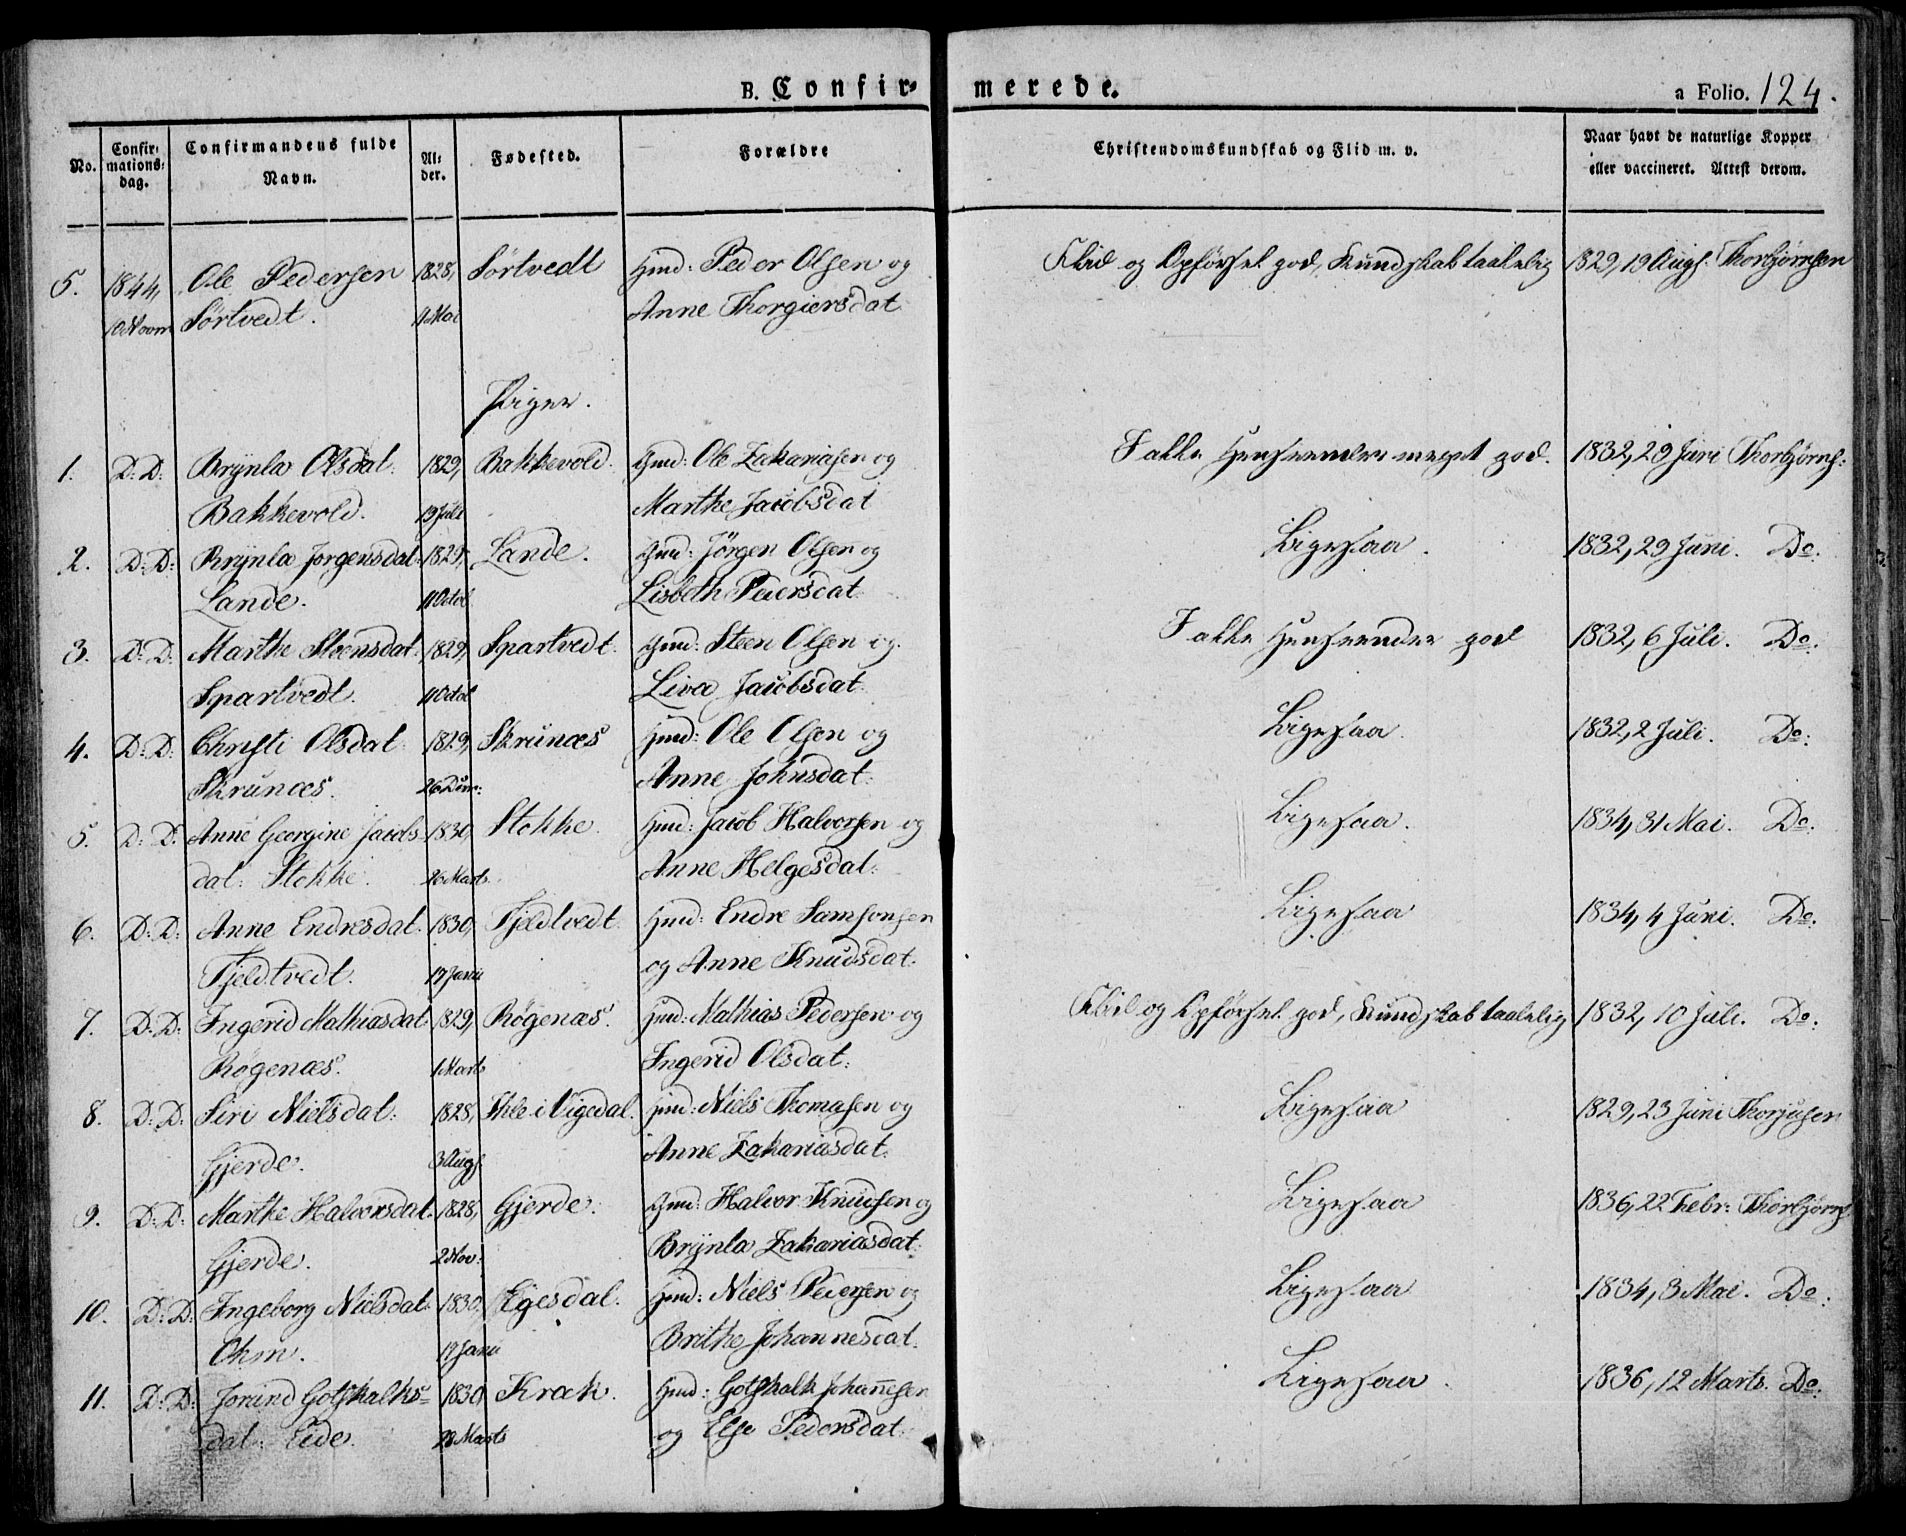 B. Confirmerede. a Folio. 124.
No. Confirmations-dag. Confirmandens fulde Navn. Alder. Fødested. Forældre Christendomskundskab og Flid m. v. Naar havt de naturlige Kopper eller vaccineret. Attest derom.
5. 1844, Ole Pedersen 1828, Sörtvedt Gmd: Peder Olsen og Flid og Opförsel god, Kundskab taalelig 1829, 19 Augs. Thorbjørnsen
10 Novm Sörtvedt. 4 Mai Anne Thorgiersdat
Piger.
1. D: D: Brÿnla Olsdat: 1829, Bakkevold. Gmd: Ole Zakariasen og I alle Henseender meget god. 1832, 29 Juni Thorbjørns:
Bakkevold. 19 Juli Marthe Jacobsdat
2. D: D: Brÿnla Jørgensdat: 1829, Lande. Gmd: Jörgen Olsen og Ligesaa. 1832, 29 Juni. Do:
Lande. 11 Octob Lisbeth Pedersdat:
3. D: D: Marthe Steensdat: 1829, Spartvedt. Gmd: Steen Olsen og I alle Henseender god 1832, 6 Juli. Do:
Spartvedt. 11 Octob Liva Jacobsdat:
4. D: D: Christi Olsdat: 1829, Skrunæs Gmd: Ole Olsen og Ligesaa. 1832, 2 Juli. Do:
Skrunæs. 26 Anne Johnsdat:
5. D: D: Anne Georgine Jacobs- 1830, Stokke. Gmd: Jacob Halvorsen og Ligesaa. 1834, 31 Mai. Do:
dat: Stokke. 26 Marts. Anne Helgesdat:
6. D: D: Anne Endresdat: 1830, Tjeldtvedt. Gmd: Endre Samsonsen Ligesaa 1834, 4 Juni. Do:
Tjeldtvedt. 17 Janu og Anne Knudsdat:
7. D: D: Ingerid Mathiasdat 1829, Røgenæs. Gmd: Mathias Pedersen og Flid og Opförsel god, Kundskab taalelig 1832, 10 Juli. Do:
Røgenæs. 1 Marts Ingerid Olsdat:
8. D: D: Siri Nielsdat: 1828, i Vigedal. Gmd: Niels Thomasen og Ligesaa 1829, 23 Juni Thorjusen
Gjerde. 3 Augs. Anne Zakariasdat:
9. D: D: Marthe Halvorsdat. 1828, Gjerde. Gmd: Halvor Knudsen og Ligesaa 1836, 22 Febr: Thorbjørns.
Gjerde. 2 Nov: Brÿnla Zakariasdat:
10. D: D: Ingeborg Nielsdat: 1830, Egesdal. Gmd: Niels Pedersen og Ligesaa 1834, 3 Mai. Do:
17 Janu Brithe Johannesdat.
11. D: D: Jorund Gotskalks- 1830, Krak. Gmd: Gotskalk Johannesen Ligesaa. 1836, 12 Marts. Do:
dat: Eide. 28 Marts og Else Pedersdat: